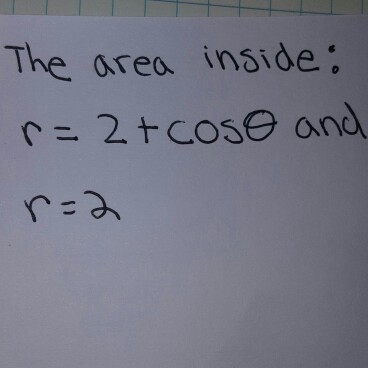 The area inside:
r = 2 + cosθ and
r = 2